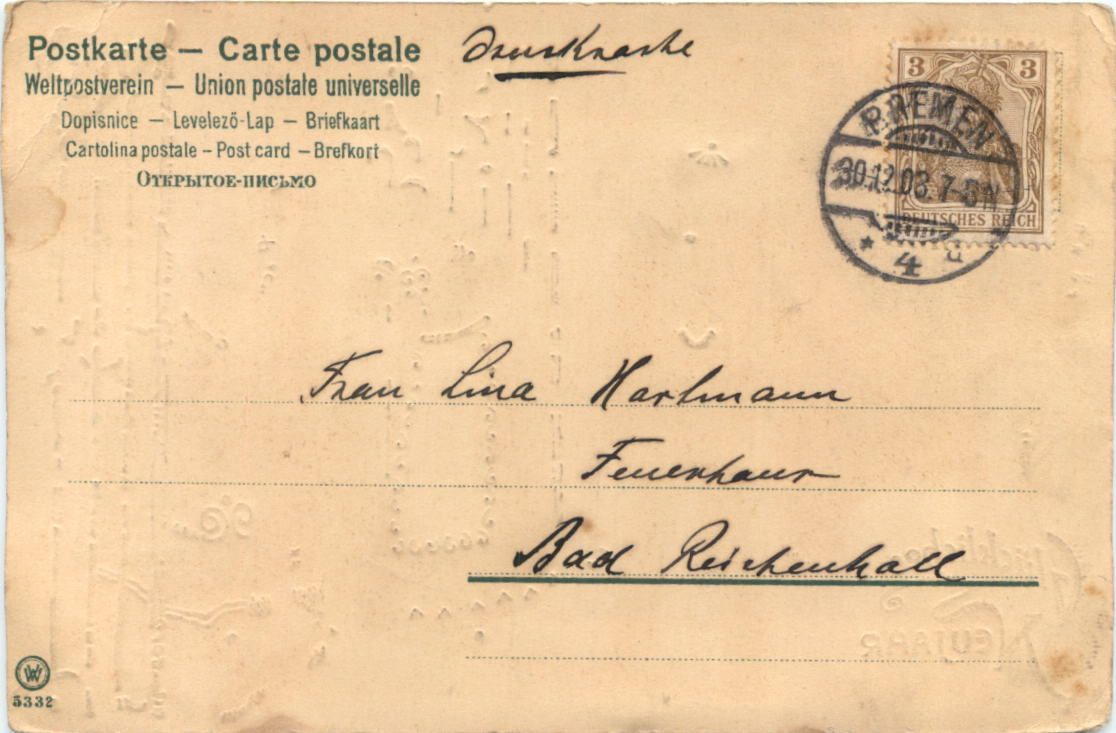 Postkarte — Carte postale
Drucksache
Weltpostverein — Union postale universelle
Dopisnice — Levelező-Lap — Briefkaart
Cartolina postale – Post card – Brefkort
Открытое-письмо
3 3
DEUTSCHES REICH
BREMEN
30.12.03. 7-8N
* 4 d
Frau Lina Hartmann
Feuerhaus
Bad Reichenhall
Glückliches
NEUJAHR
WW
5332